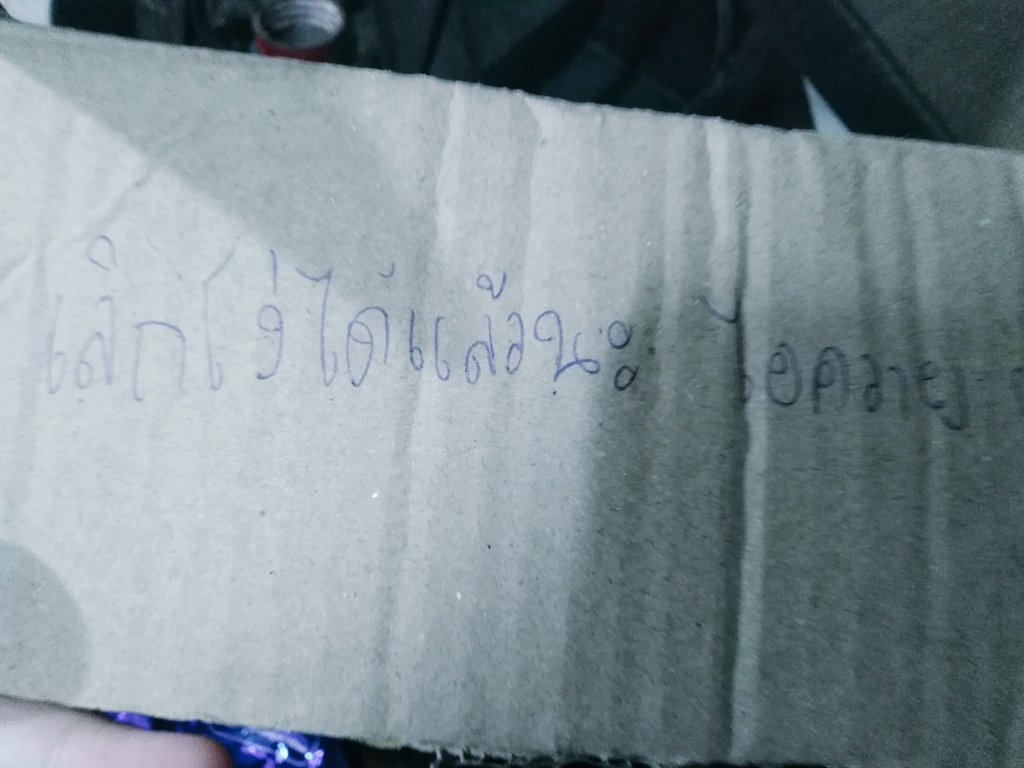 เลิกโง่ได้แล้วนะ ไอควาย